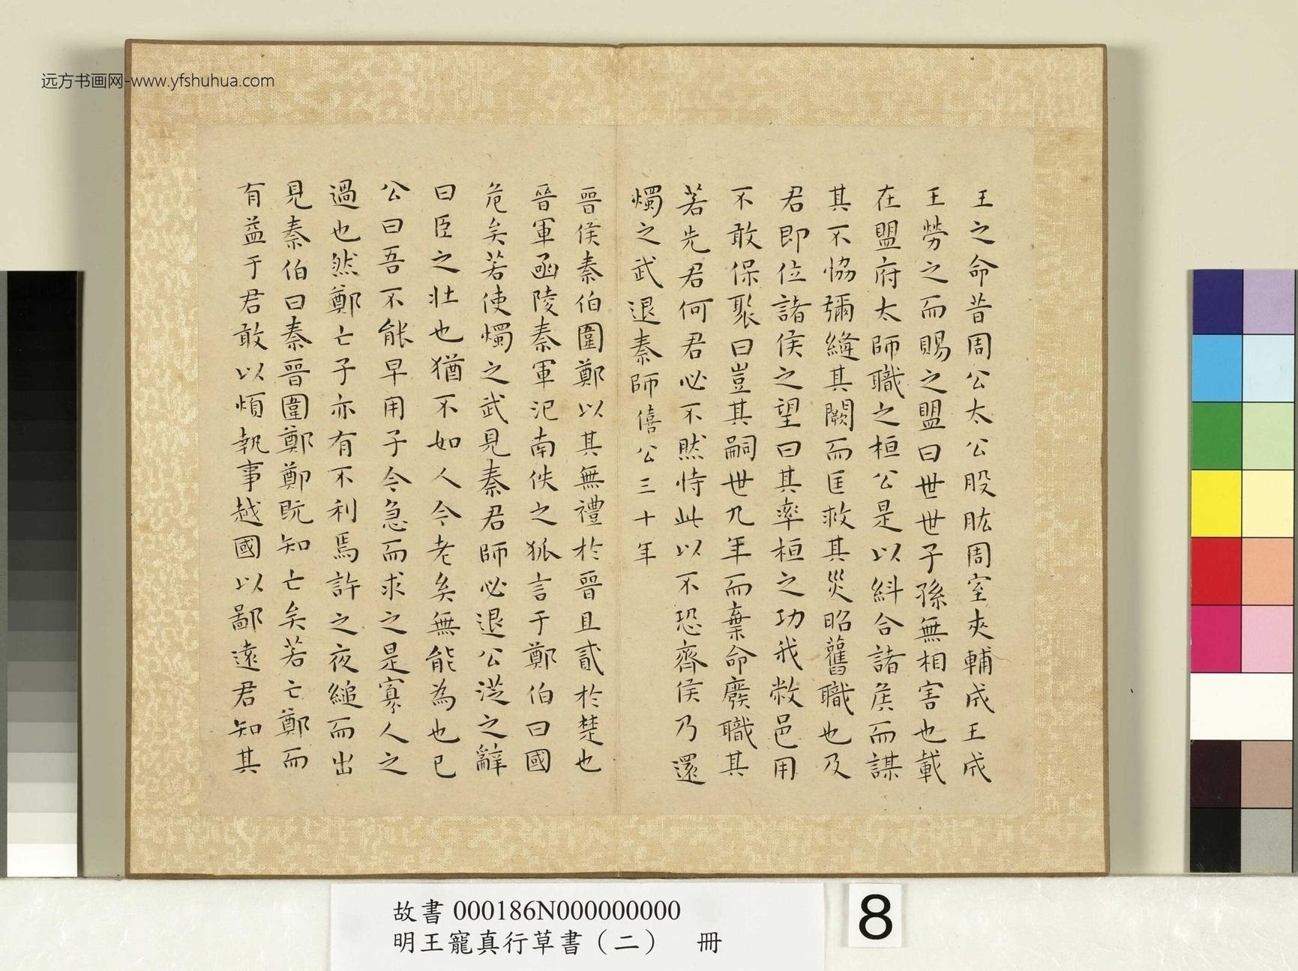 远方书画网-www.yfshuhua.com
王之命昔周公太公股肱周室夾輔成王成
王勞之而賜之盟曰世世子孫無相害也載
在盟府太師職之桓公是以糾合諸侯而謀
其不恊彌縫其闕而匡救其災昭舊職也及
君即位諸侯之望曰其率桓之功我敝邑用
不敢保聚曰豈其嗣世九年而棄命廢職其
若先君何君必不然恃此以不恐齊侯乃還
燭之武退秦師僖公三十年
晉侯秦伯圍鄭以其無禮於晉且貳於楚也
晉軍函陵秦軍氾南佚之狐言于鄭伯曰國
危矣若使燭之武見秦君師必退公從之辭
曰臣之壯也猶不如人今老矣無能為也已
公曰吾不能早用子今急而求之是寡人之
過也然鄭亡子亦有不利焉許之夜縋而出
見秦伯曰秦晉圍鄭鄭既知亡矣若亡鄭而
有益于君敢以煩執事越國以鄙遠君知其
故書 000186N000000000
明王寵真行草書（二） 冊
8